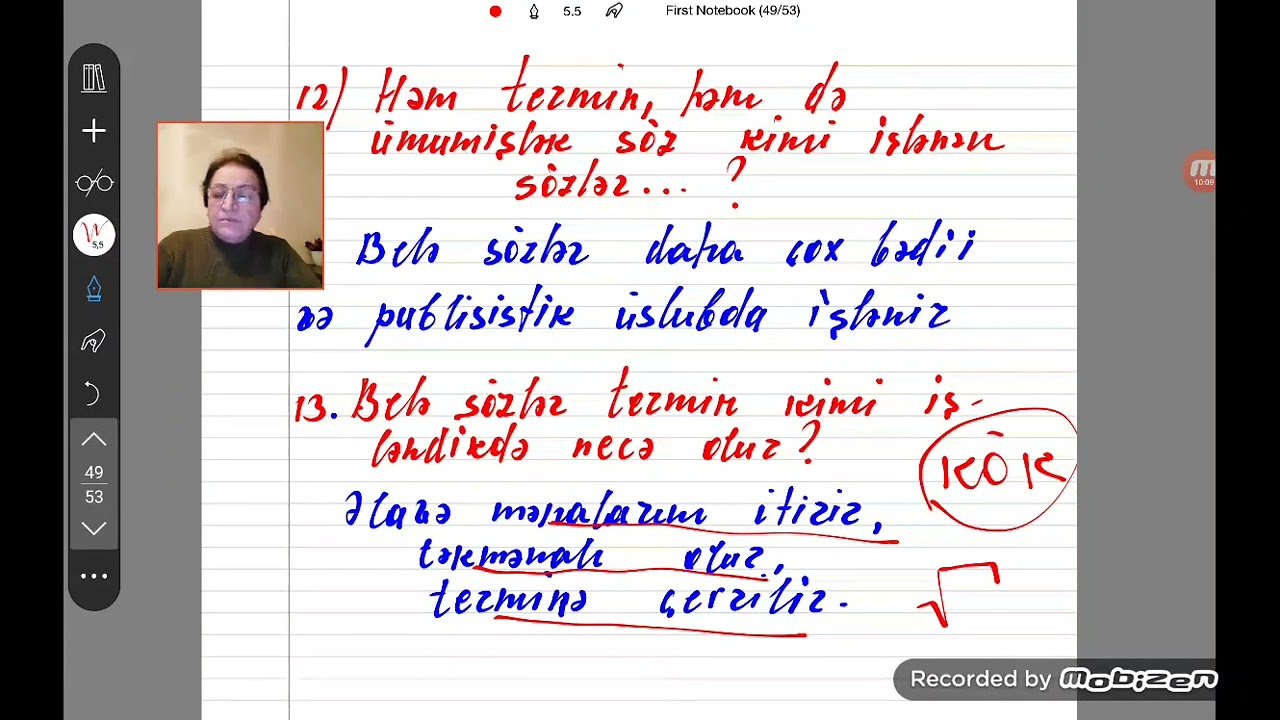 5.5 First Notebook (49/53)
12) Həm termin, həm də
ümumişlək söz kimi işlənən
sözlər... ?
Belə sözlər daha çox bədii
və publisistik üslubda işlənir
13. Belə sözlər termin kimi iş-
ləndikdə necə olur?
KÖK
Əlavə mənalarını itirir,
təkmənalı olur,
terminə çevrilir.
5,5
49
53
10:09
Recorded by mobizen